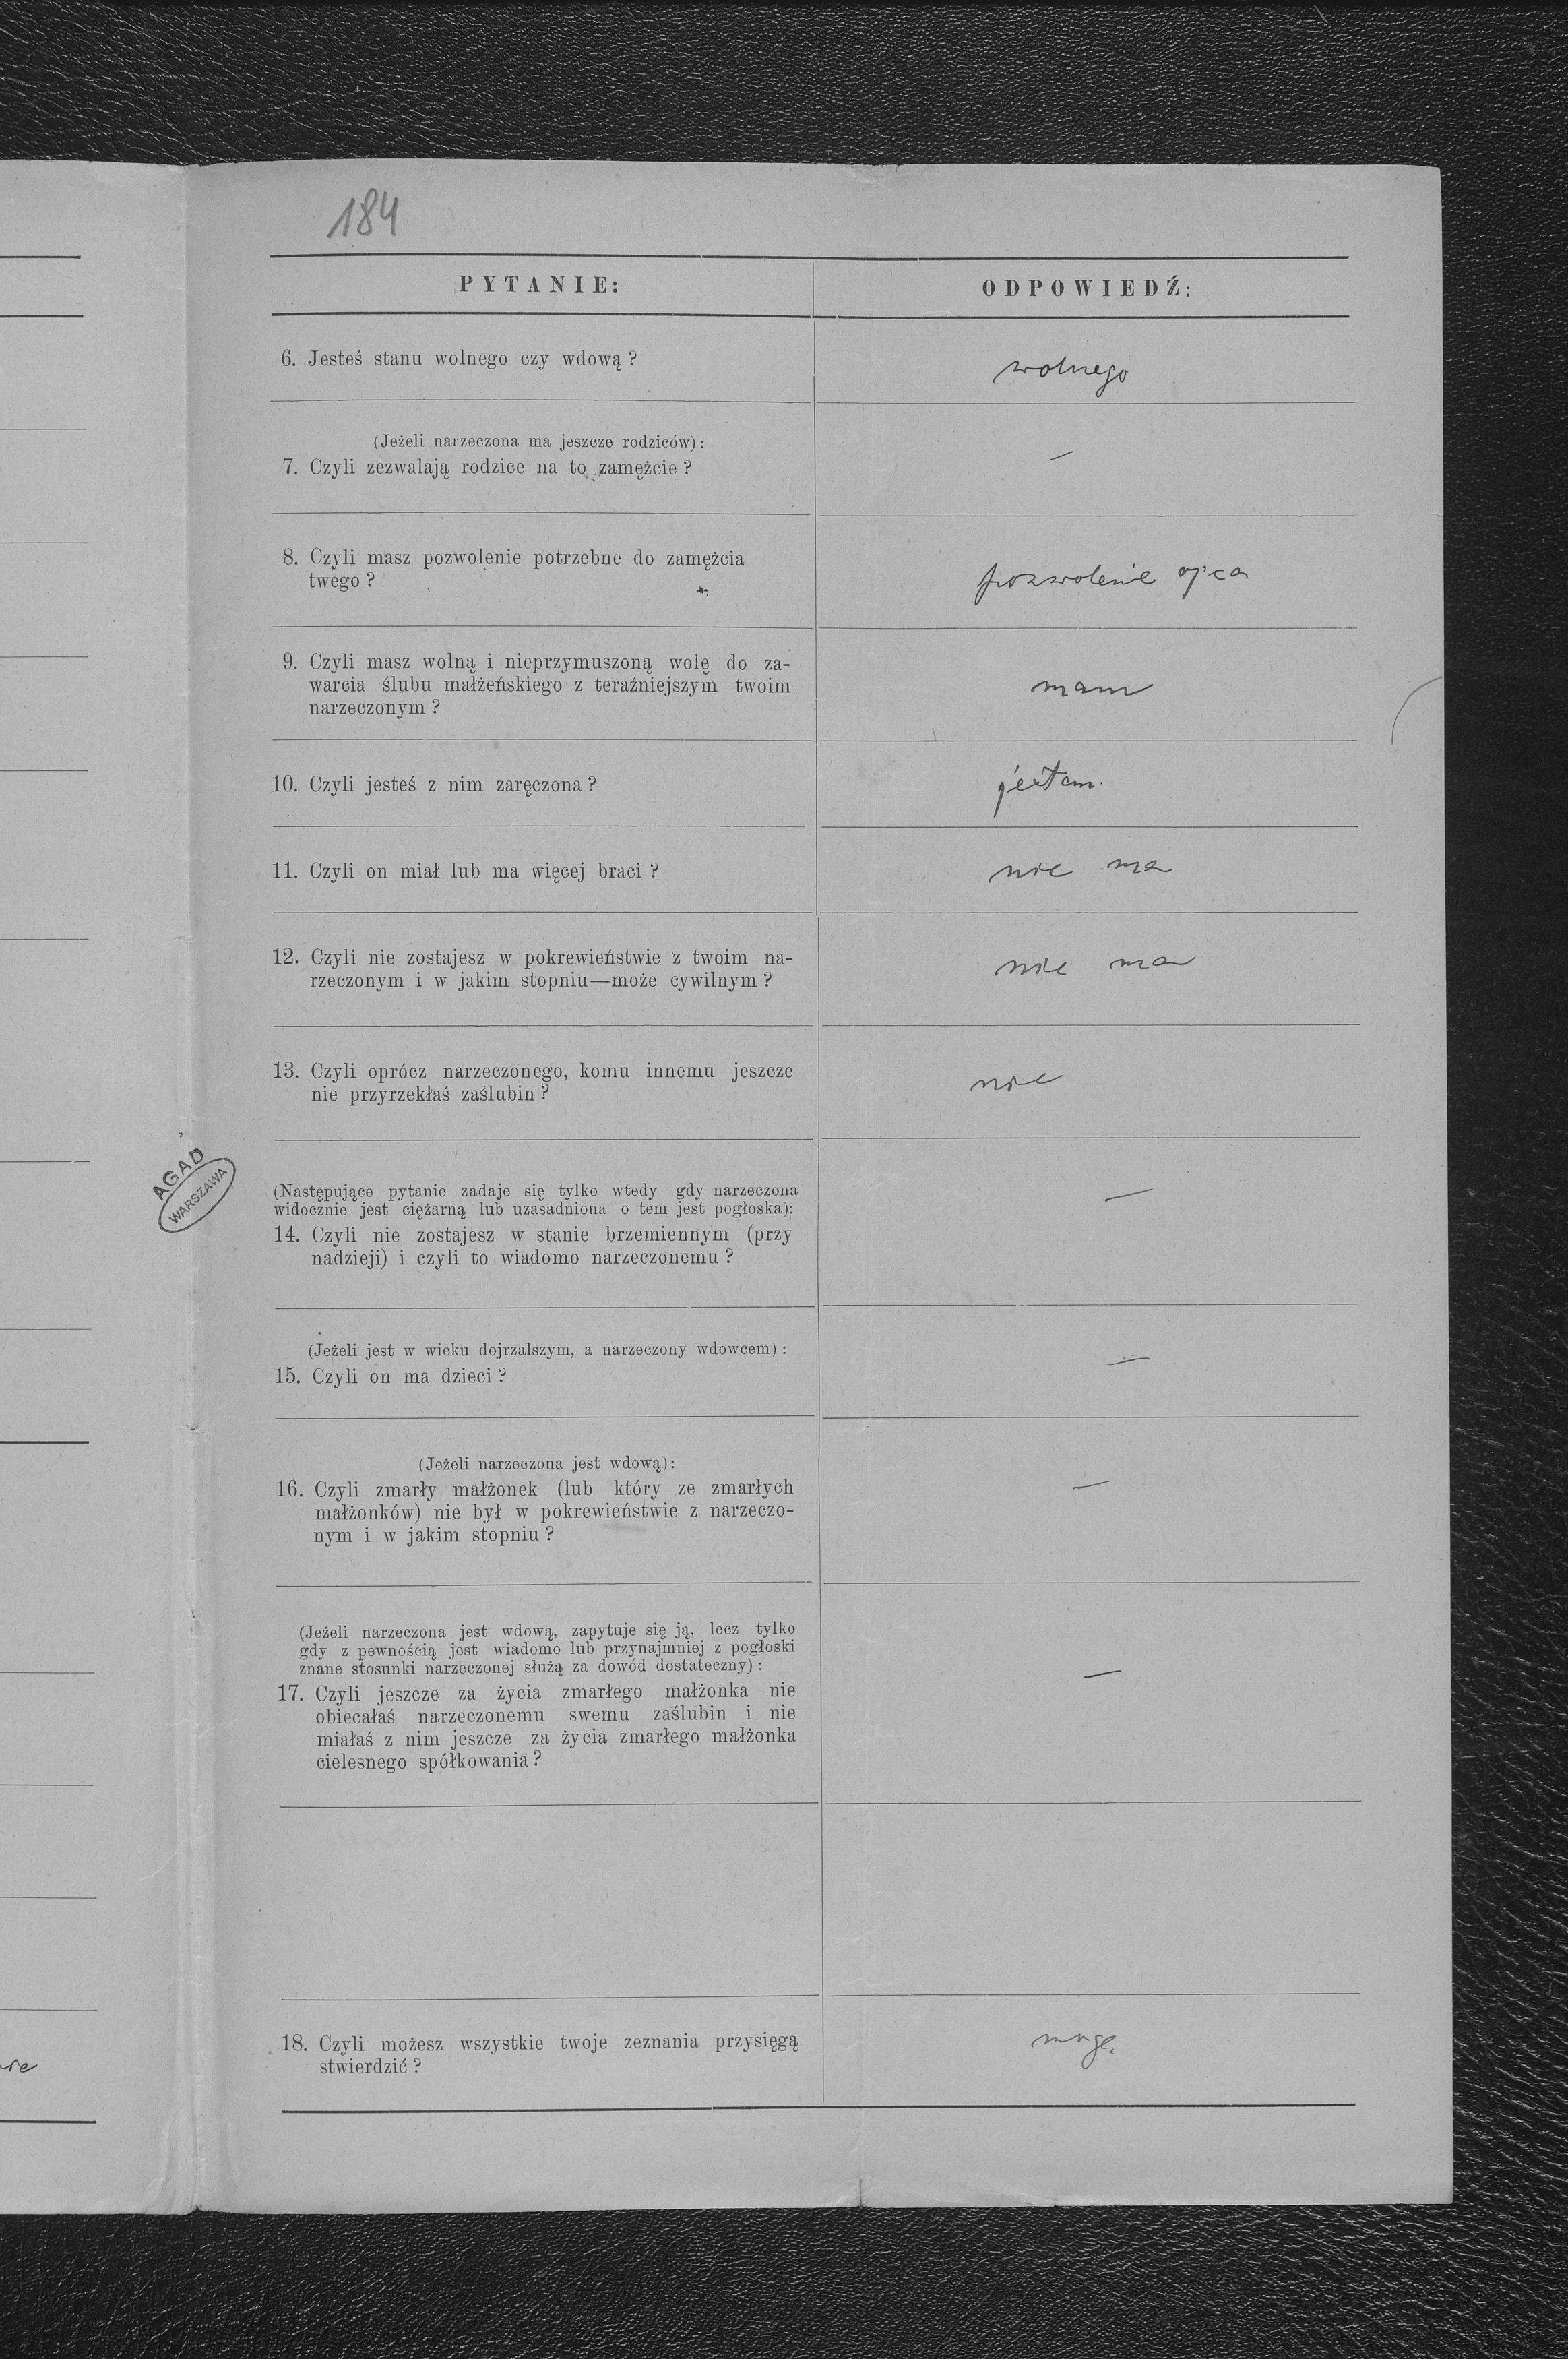 184
PYTANIE:
ODPOWIEDŹ:
6. Jesteś stanu wolnego czy wdową?
wolnego
(Jeżeli narzeczona ma jeszcze rodziców):
7. Czyli zezwalają rodzice na to zamęźcie?
—
8. Czyli masz pozwolenie potrzebne do zamęźcia
twego?
pozwolenie ojca
9. Czyli masz wolną i nieprzymuszoną wolę do za-
warcia ślubu małżeńskiego z teraźniejszym twoim
narzeczonym?
mam
10. Czyli jesteś z nim zaręczona?
jestem.
11. Czyli on miał lub ma więcej braci?
nie ma
12. Czyli nie zostajesz w pokrewieństwie z twoim na-
rzeczonym i w jakim stopniu—może cywilnym?
nie ma
13. Czyli oprócz narzeczonego, komu innemu jeszcze
nie przyrzekłaś zaślubin?
nie
AGAD
WARSZAWA
(Następujące pytanie zadaje się tylko wtedy gdy narzeczona
widocznie jest ciężarną lub uzasadniona o tem jest pogłoska):
14. Czyli nie zostajesz w stanie brzemiennym (przy
nadzieji) i czyli to wiadomo narzeczonemu?
—
(Jeżeli jest w wieku dojrzalszym, a narzeczony wdowcem):
15. Czyli on ma dzieci?
—
(Jeżeli narzeczona jest wdową):
16. Czyli zmarły małżonek (lub który ze zmarłych
małżonków) nie był w pokrewieństwie z narzeczo-
nym i w jakim stopniu?
—
(Jeżeli narzeczona jest wdową, zapytuje się ją, lecz tylko
gdy z pewnością jest wiadomo lub przynajmniej z pogłoski
znane stosunki narzeczonej służą za dowód dostateczny):
17. Czyli jeszcze za życia zmarłego małżonka nie
obiecałaś narzeczonemu swemu zaślubin i nie
miałaś z nim jeszcze za życia zmarłego małżonka
cielesnego spółkowania?
—
18. Czyli możesz wszystkie twoje zeznania przysięgą
stwierdzić?
mogę